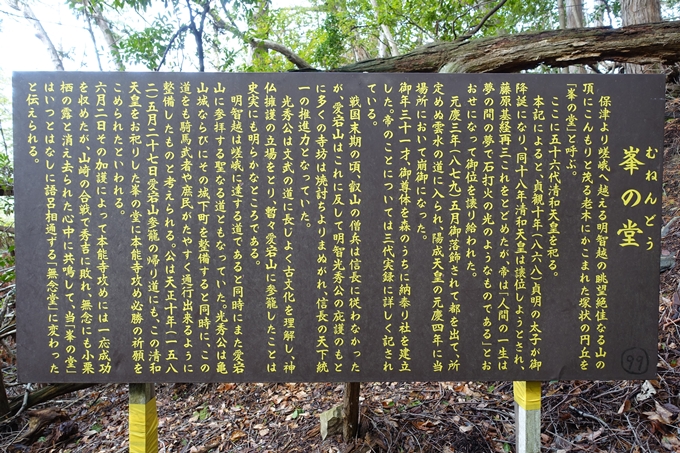 むねんどう
峯の堂
保津より嵯峨へ越える明智越の眺望絶佳なる山の
頂にこんもりと茂る老木にかこまれた塚状の円丘を
「峯の堂」と呼ぶ。
ここに五十六代清和天皇を祀る。
本記によると、貞観十年(八六八)貞明の太子が御
降誕になり、同十八年清和天皇は譲位しようとされ、
藤原基経再三これをとどめたが、帝は「人間の一生は
夢の間の夢で石打つ火の光のようなものである」とお
おせになって御位を譲り給われた。
元慶三年(八七九)五月御落飾されて都を出て、所
定めぬ雲水の道に入られ、陽成天皇の元慶四年に当
場所において崩御になった。
御年三十一才、御尊体を森のうちに納奉り社を建立
した。帝のことについては三代実録に詳しく記され
ている。
戦国末期の頃、叡山の僧兵は信長に従わなかった
が、愛宕山はこれに反して明智光秀公の庇護のもと
に多くの寺坊は焼討よりまぬがれ、信長の天下統
一の推進力となっていた。
光秀公は文武の道に長じよく古文化を理解し、神
仏擁護の立場をとり、暫々愛宕山に参籠したことは
史実にも明らかなところである。
明智越は嵯峨に達する道であると同時にまた愛宕
山に参拝する聖なる道ともなっていた。光秀公は亀
山城ならびにその城下町を整備すると同時に、この
道をも騎馬武者や庶民がたやすく通行出来るように
整備したものと考えられる。公は天正十年(一五八
二)五月二十七日愛宕山参籠の帰り道にも、この清和
天皇をお祀りした峯の堂に本能寺攻め必勝の祈願を
こめられたといわれる。
六月二日その加護によって本能寺攻めには一応成功
を収めたが、山崎の合戦で秀吉に敗れ、無念にも小栗
栖の露と消え去られた心中に共鳴して、当「峯の堂」
はいつとはなしに語呂相通ずる「無念堂」に変わった
と伝えられる。
99